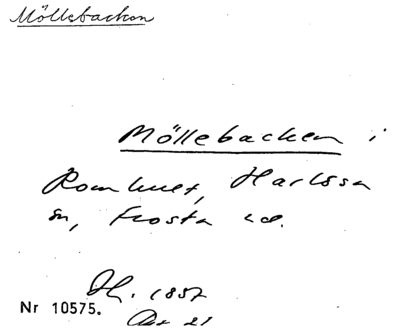 Möllebacken
Möllebacken i
Romhuset, Harlösa
sn, Frosta hd.
1857
Nr 10575.
21